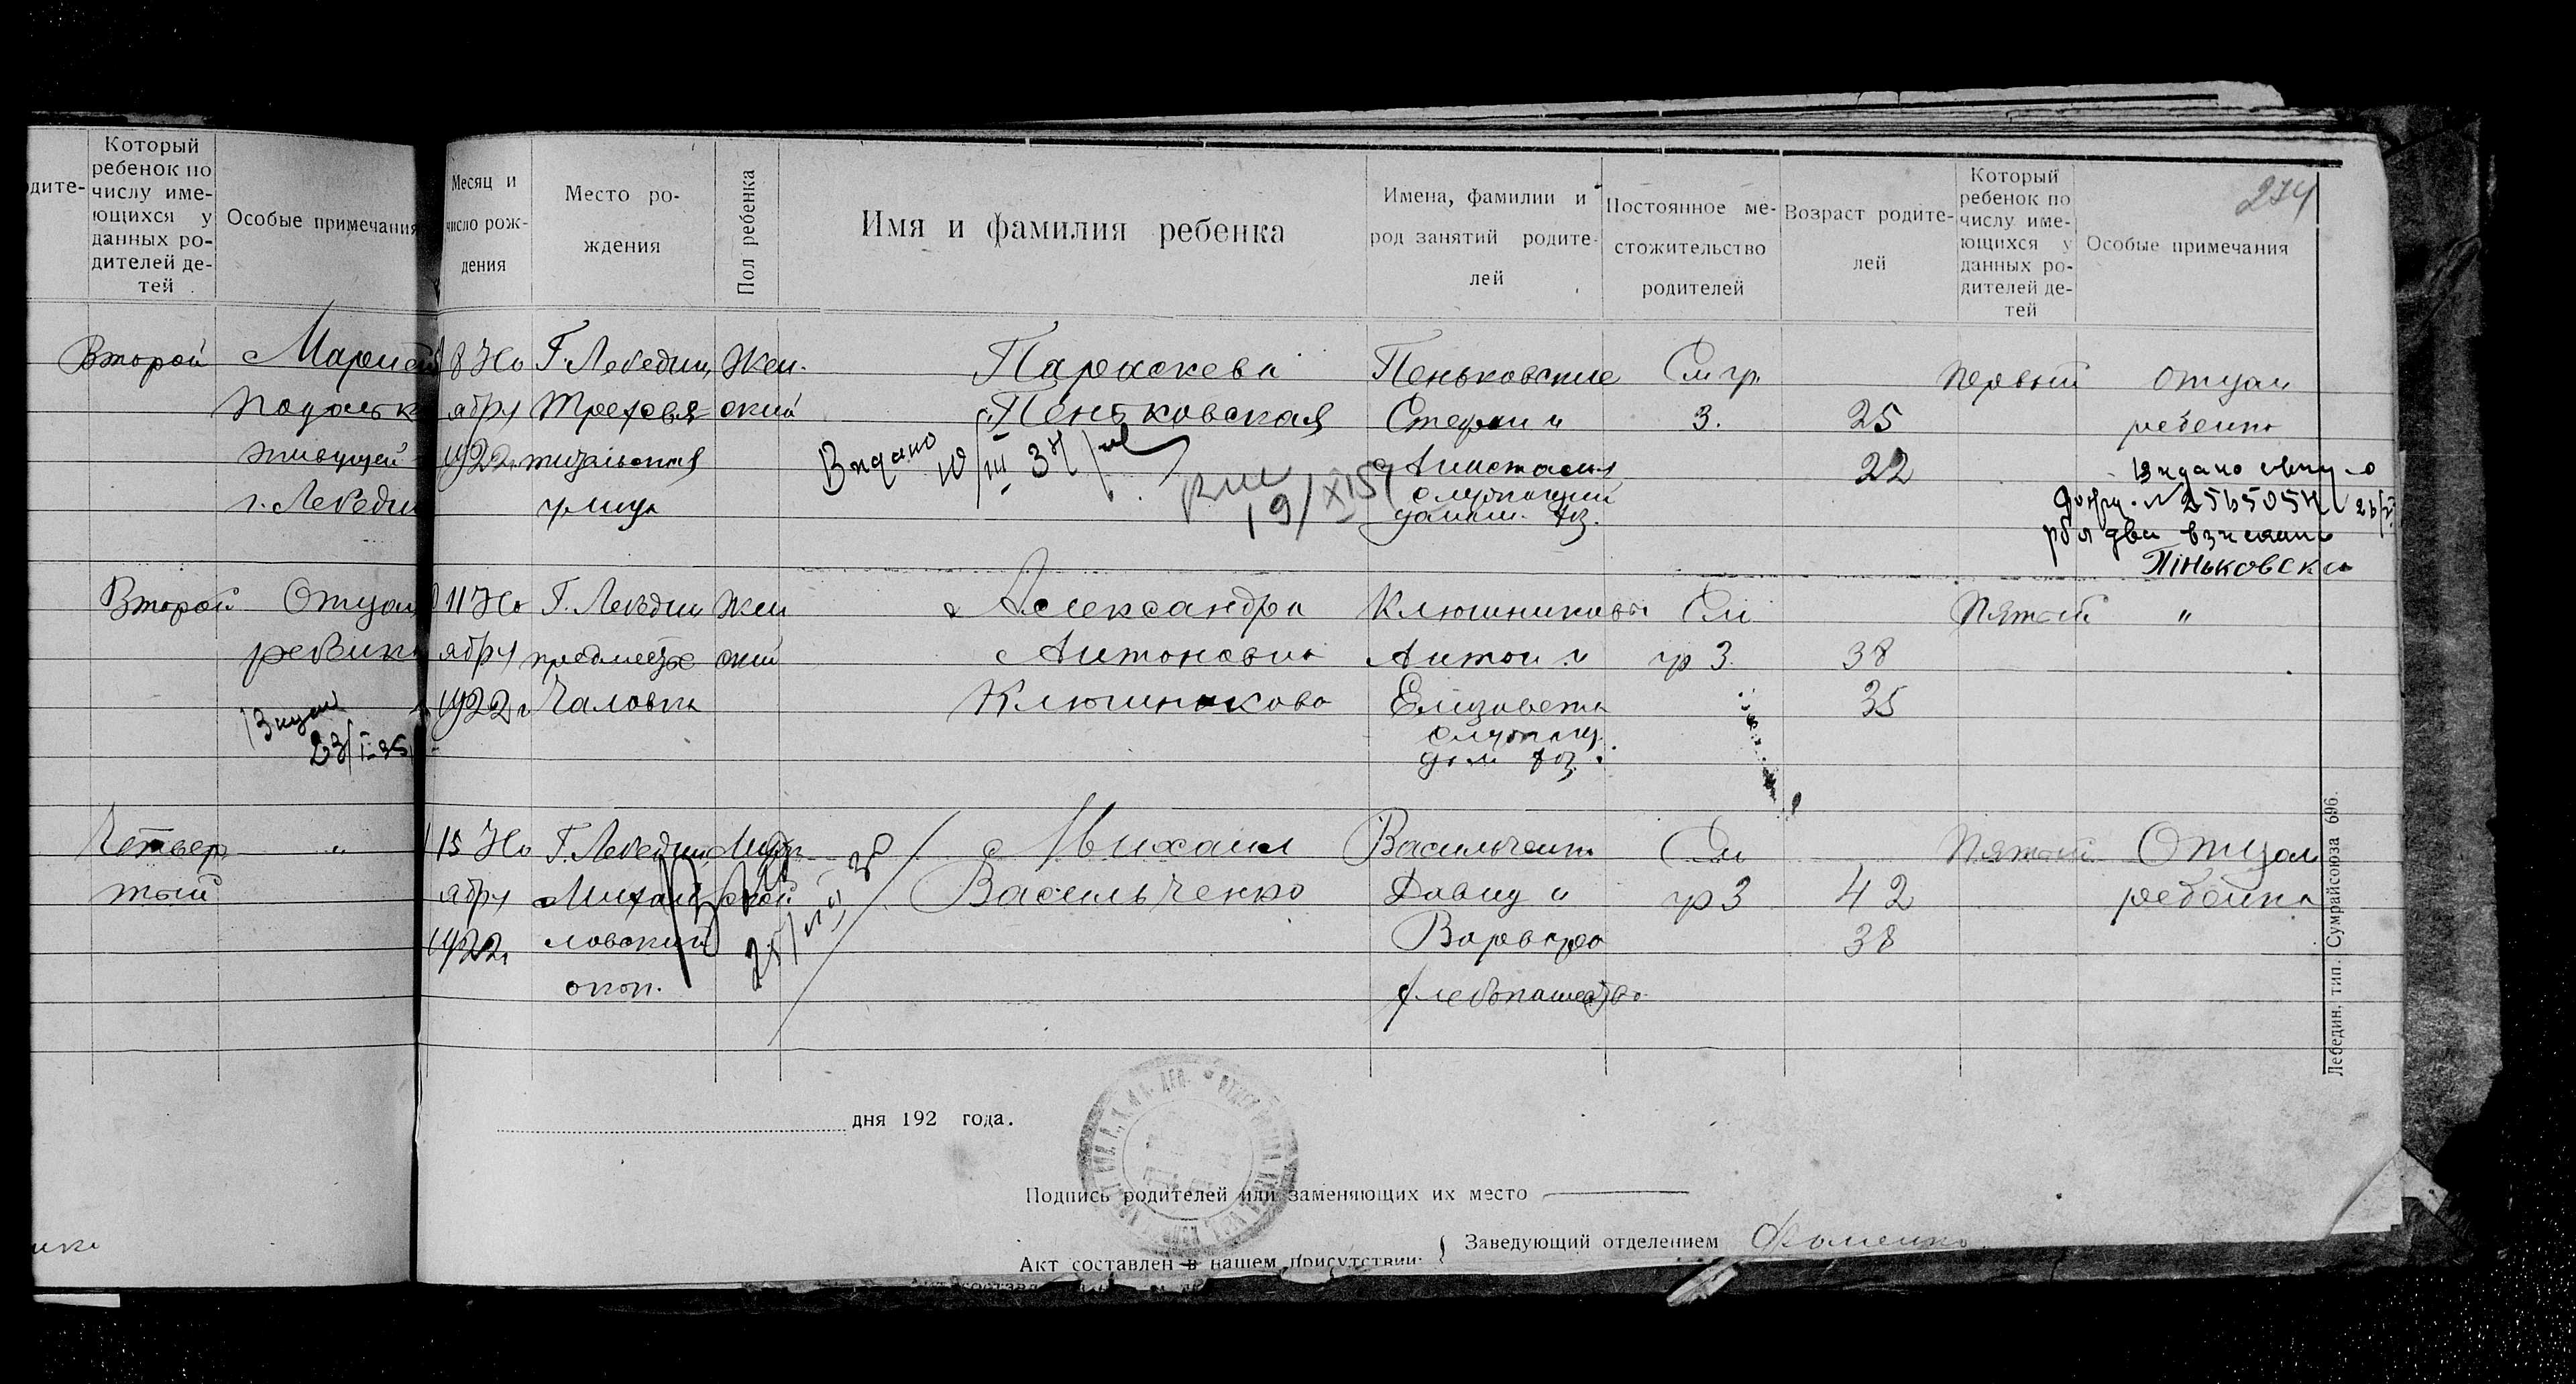 Который
ребенок по
числу име-
ющихся у
данных ро-
дителей де-
тей
дите-
Особые примечания
Второй
Марией
живущей
г. Лебедин
Второй Отцом
23/I-35
Четвер
тый
"
274
Месяц и
число рож-
дения
Место ро-
ждения
Пол ребенка
Имя и фамилия ребенка
Имена, фамилии и
род занятий родите-
лей
Постоянное ме-
стожительство
родителей
Возраст родите-
лей
Который
ребенок по
числу име-
ющихся у
данных ро-
дителей де-
тей
Особые примечания
8 Но
ября
1922 г
Г. Лебедин
Тресвя
тительская
улица
Жен.
ский
Параскева
Пеньковская
Видано
10/III 37
19/XI 5
Пеньковские
Стефан и
Анастасия
служащий
домаш. хоз.
См гр.
3.
25
22
Первый
Отцом
ребенка
Видано
N 256505
два
Піньковськ
11 Но
ября
1922 г
Г. Лебедин
предместье
Чаловка
Жен
ский
Александра
Антоновна
Ключникова
Ключниковы
Антон и
Елизавета
служащ.
дом хоз.
См
гр 3.
38
35
Пятый
"
15 Но
ября
1922
Г. Лебедин
Михай
ловский
окоп.
Муж
ской
Михаил
Васильченко
Васильченки
Давид и
Варвара
хлебопашество
См
гр 3
42
38
Пятый
Отцом
ребенка
дня 192 года.
Подпись родителей или заменяющих их место
Акт составлен в нашем присутствии:
Заведующий отделением Фоменко
Лебедин, тип. Сумрайсоюза 696.